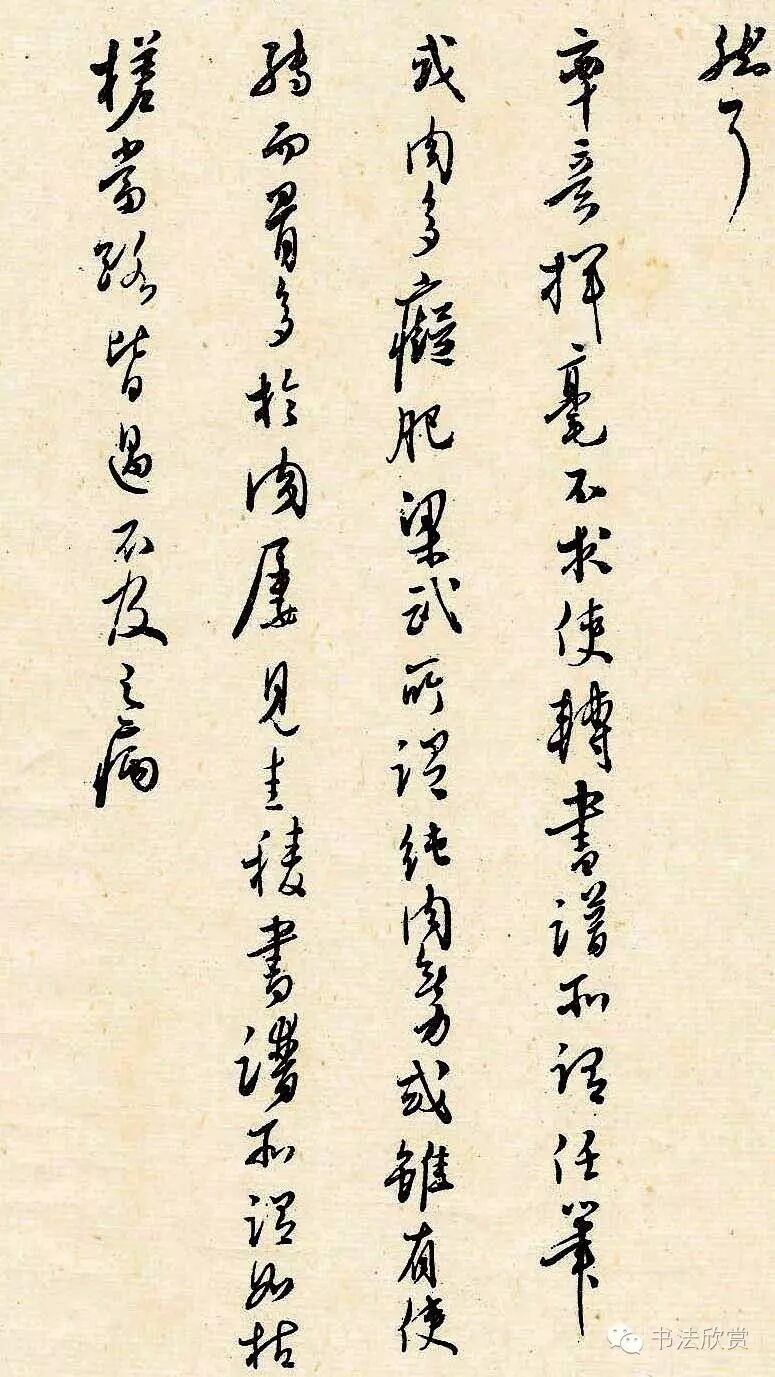 然耳
率意揮毫不求使轉書譜所謂任筆
或肉多癡肥梁武所謂純肉無力或雖有使
轉而骨多於肉屢見圭稜書譜所謂如枯
槎當路皆過不及之病
书法欣赏